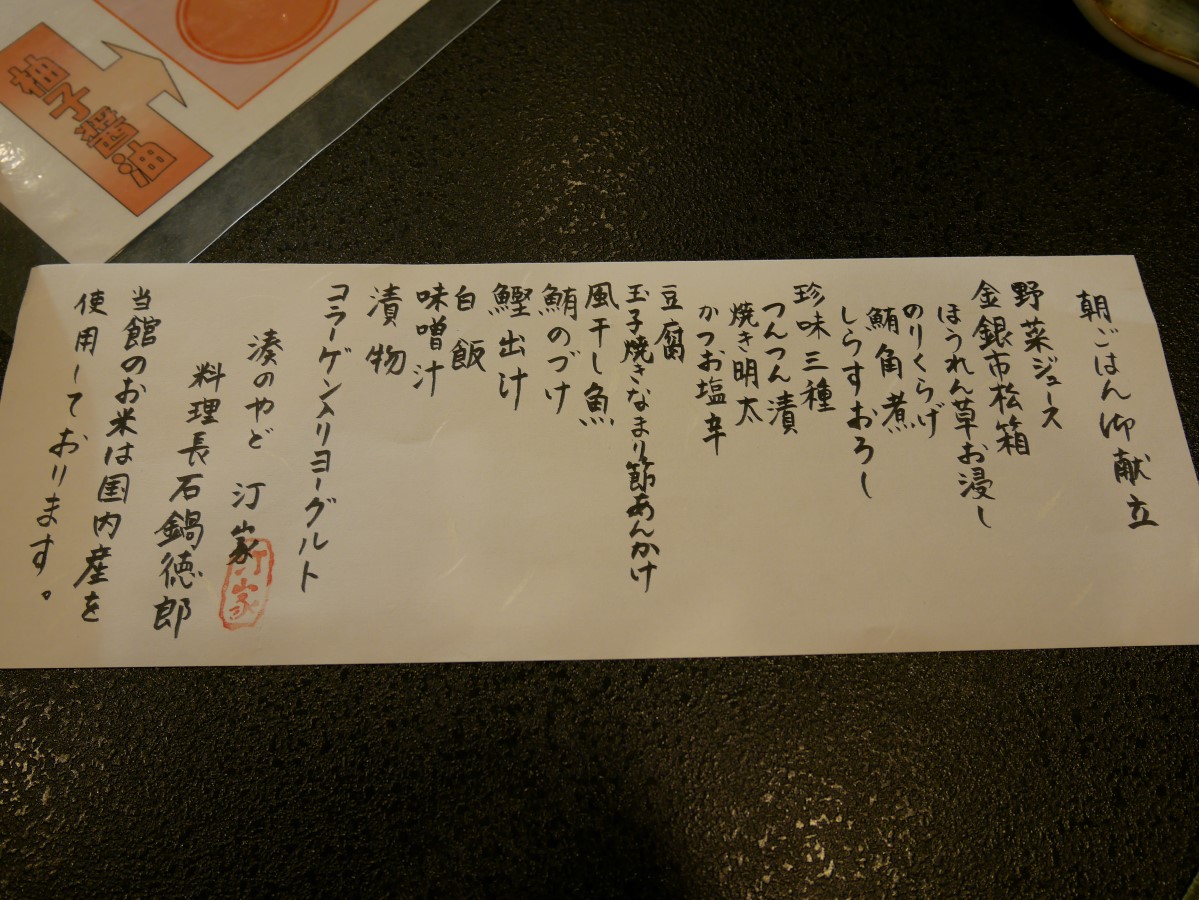 朝ごはん御献立
野菜ジュース
金銀市松箱
ほうれん草お浸し
のりくらげ
鮪角煮
しらすおろし
珍味三種
つんつん漬
焼き明太
かつお塩辛
豆腐
玉子焼きなまり節あんかけ
風干し魚
鮪のづけ
鰹出汁
白飯
味噌汁
漬物
コラーゲン入りヨーグルト
湊のやど 汀家
汀家
料理長石鍋徳郎
当館のお米は国内産を
使用しております。
柚子醤油